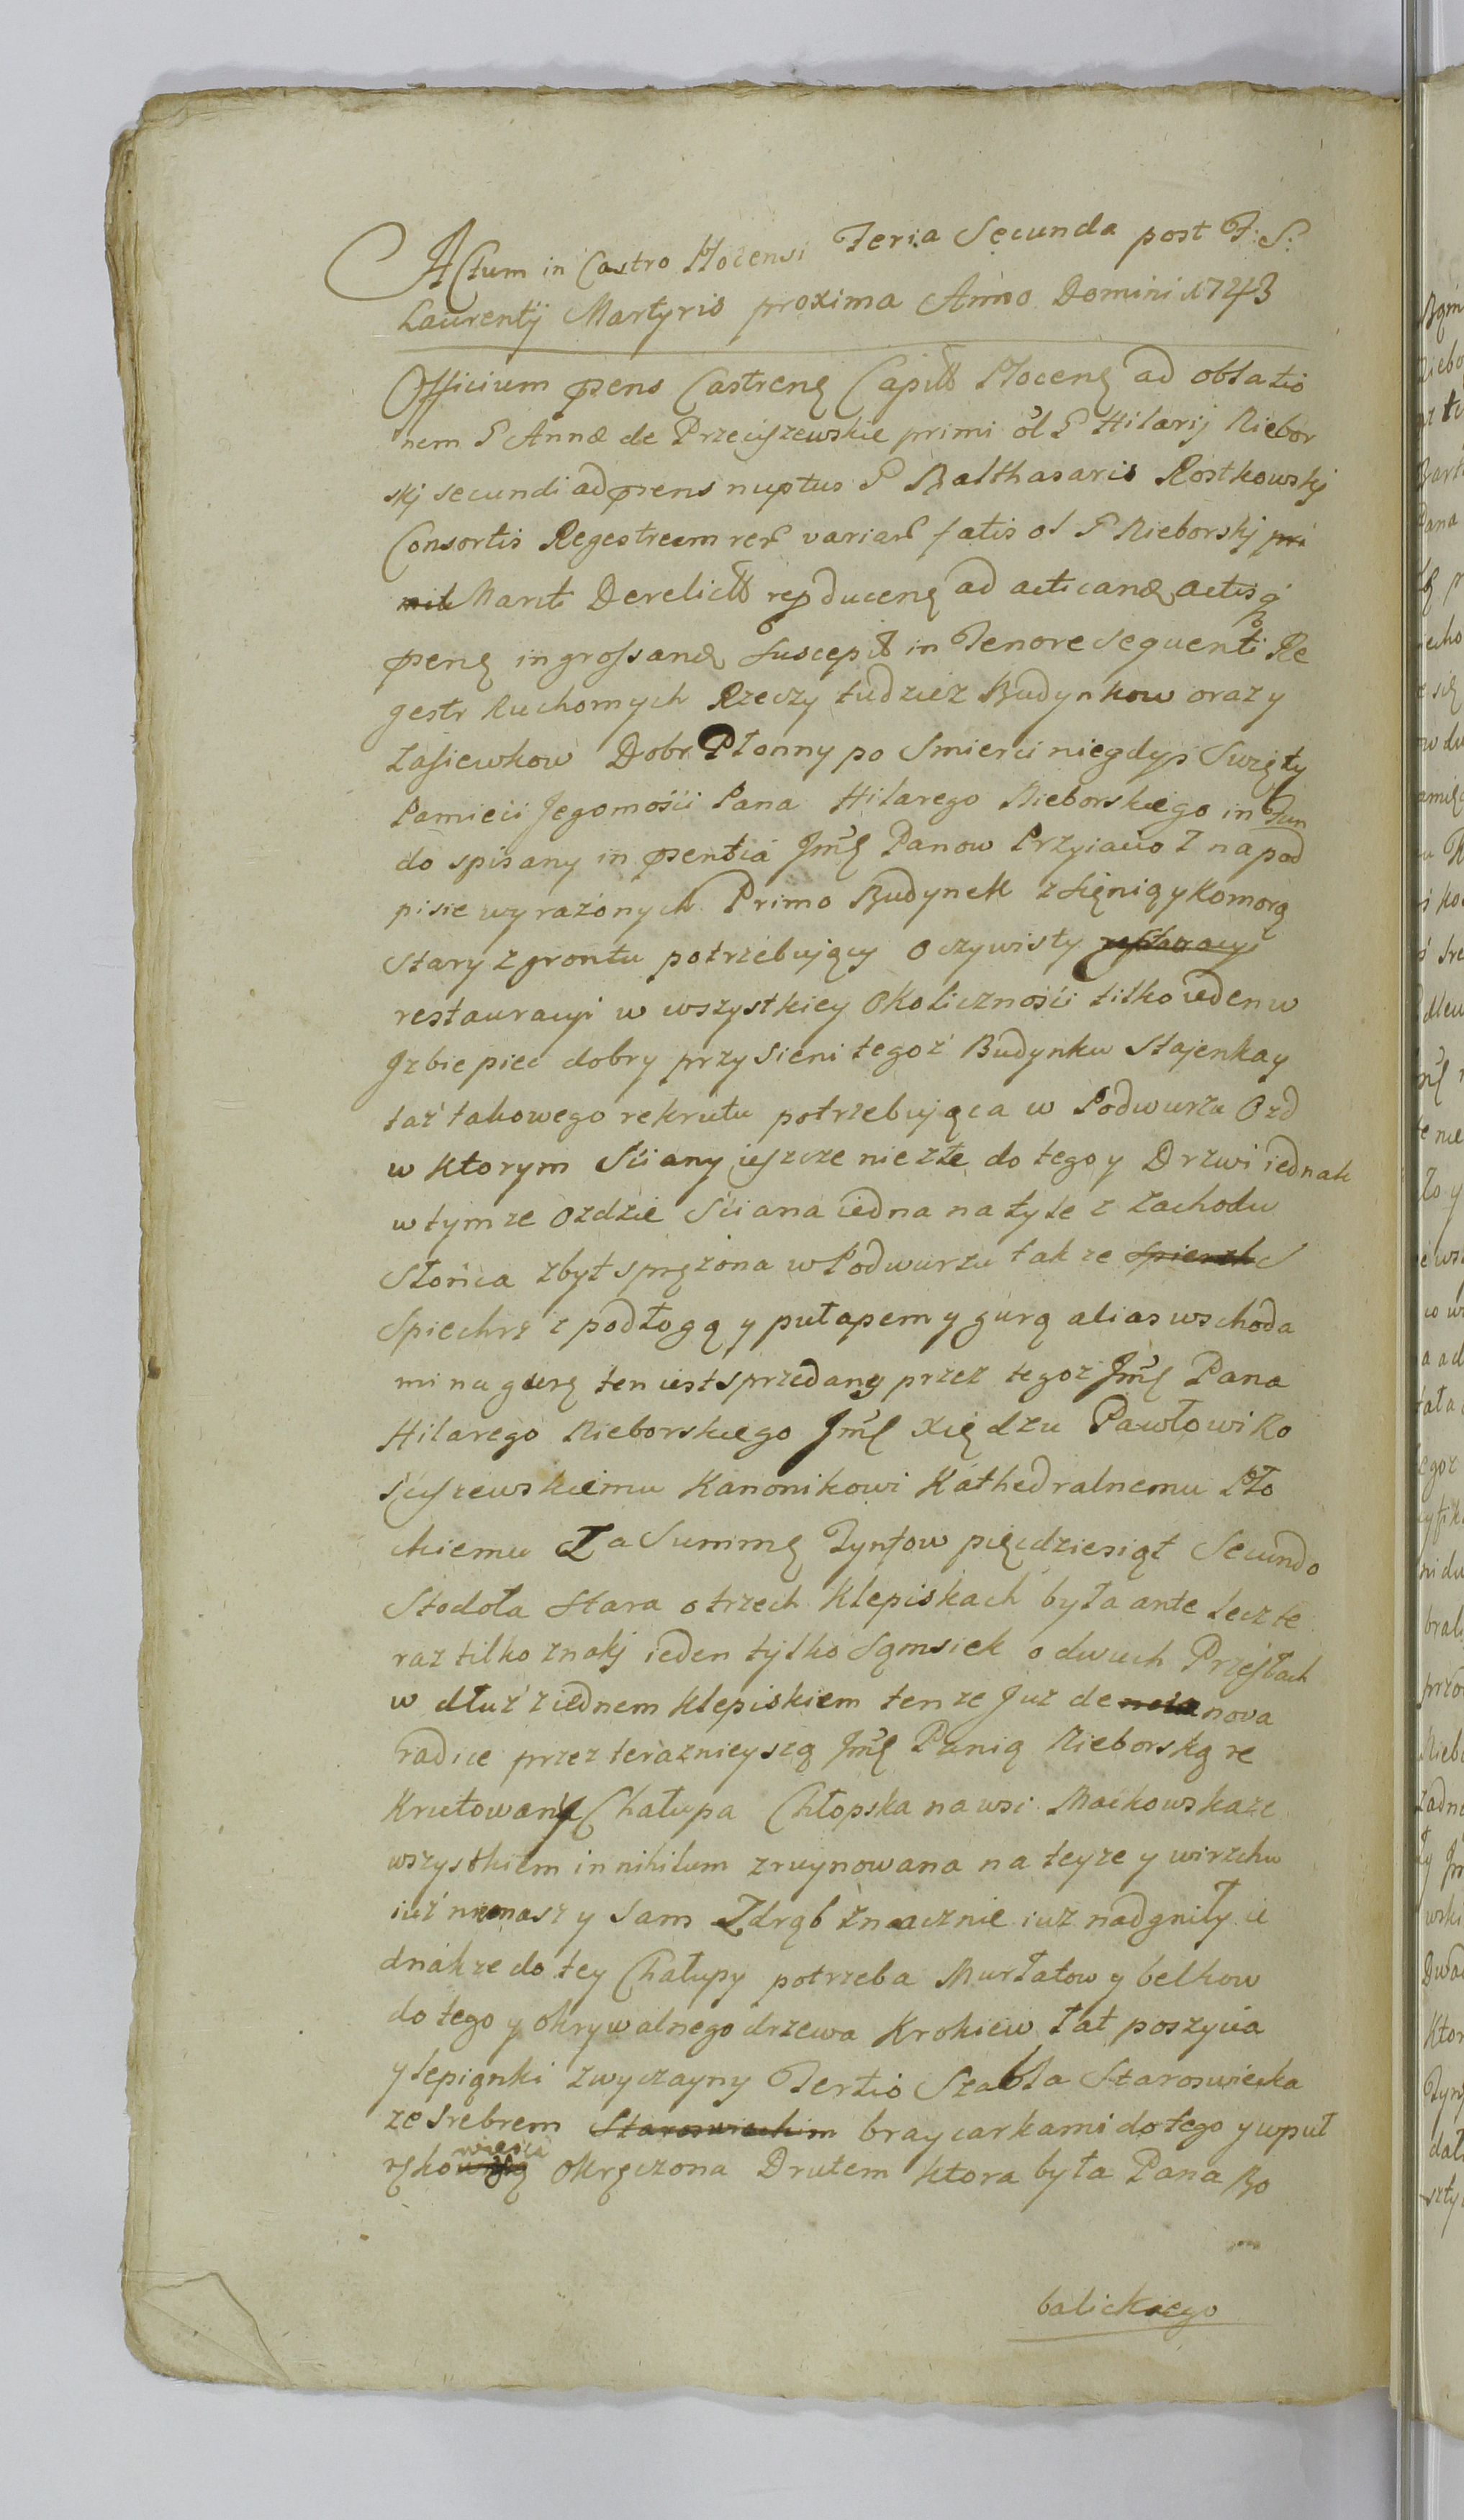 Actum in Castro Płocensi Feria Secunda post F: S:
Laurentÿ Martyris proxima Anno Domini 1743
Officium pens Castrenę Capitł Płocenę ad oblatio
nem G Annæ de Przeciszewskie primi ol G Hilarij Niebor
skj secundi ad psens nuptus G Balthasaris Rostkowskj
Consortis Regestrum rer variar fatis ol G Nieborskj pri
mit Marit Derelict repducenę ad acticand actisq
psenę ingrossand suscepit in Tenore sequenti Re
gestr Ruchomych Rzeczy tudziez Budynkow oraz y
Zasiewkow Dobr Płonny po Smierci niegdys Swięty
Pamieci Jegomości Pana Hilarego Nieborskiego in Fun
do spisany in psentia Jmć Panow Przyiacioł na pod
pisie wyrażonych Primo Budynek z sięnią y komorą
stary z gruntu potrzebujący oczywisty restauracyi
restauracyi w wszystkiey okoliczności tilko ieden w
Jzbie piec dobry przy sieni tegoż Budynku Stajenka y
taż takowego rekrutu potrzebująca w Podwurzu Ozd
w ktorym Sciany ieszcze nie złe do tego y Drzwi iednak
w tymze ozdzie Sciana iedna na tyle z zachodu
Słońca zbyt sprężona w Podwurzu takze Spierzh S
Spiechrz z podłogą y pułapem y gurą alias wschoda
mi na gurę ten iest sprzedany przez tegoz Jmć Pana
Hilarego Nieborskiego Jmć Xiędzu Pawłowi Ko
sciszewskiemu Kanonikowi Kathedralnemu Pło
ckiemu Za Summę Tynfow pięcdziesiąt Secundo
Stodoła stara o trzech klepiskach była ante lecz te
raz tilko znakj ieden tylko Sąmsiek o dwuch Przejsłach
w dłuż z iednem klepiskiem tenze Juz de nova nova
radice przez terazniejszą Jmć Panią Nieborską re
krutowany Chałupa Chłopska na wsi Maćkowska ze
wszystkiem in nihilum zruynowana na teyze y wirzchu
iuż nimasz y sam Zdrąb znacznie iuz nadgniły ie
dnakze do tey Chałupy potrzeba Murłatow y belkow
do tego y okrywalnego drzewa Krokiew łat poszycia
y lepiąnki zwyczayny Tertio Szabla Staroswiecka
ze srebrem Staroswieckim braycarkami do tego y wpuł
rękowieści okręczona Drutem ktora była Pana Bo
balickiego